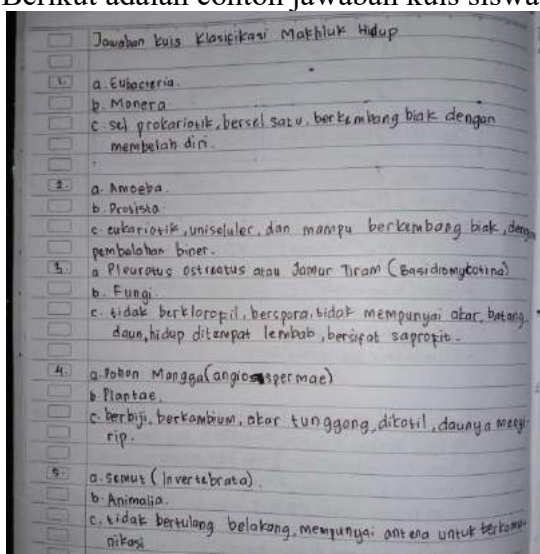 Berikut adalah contoh jawaban kuis siswa
Jawaban kuis Klasifikasi Makhluk Hidup
1. a. Eubacteria.
b. Monera
c. sel prokariotik, bersel satu, berkembang biak dengan
membelah diri.
2. a. Amoeba.
b. Protista
c. eukariotik, uniseluler, dan mampu berkembang biak, dengan
pembelahan biner.
3. a Pleurotus ostreatus atau Jamur Tiram (Basidiomycotina)
b. Fungi.
c. tidak berklorofil, berspora, tidak mempunyai akar, batang,
daun, hidup ditempat lembab, bersifat saprofit.
4. a. Pohon Mangga (angiospermae)
b. Plantae.
c. berbiji, berkambium, akar tunggang, dikotil, daunya menyi-
rip.
5. a. semut (Invertebrata)
b. Animalia.
c. tidak bertulang belakang, mempunyai antena untuk berkomu-
nikasi